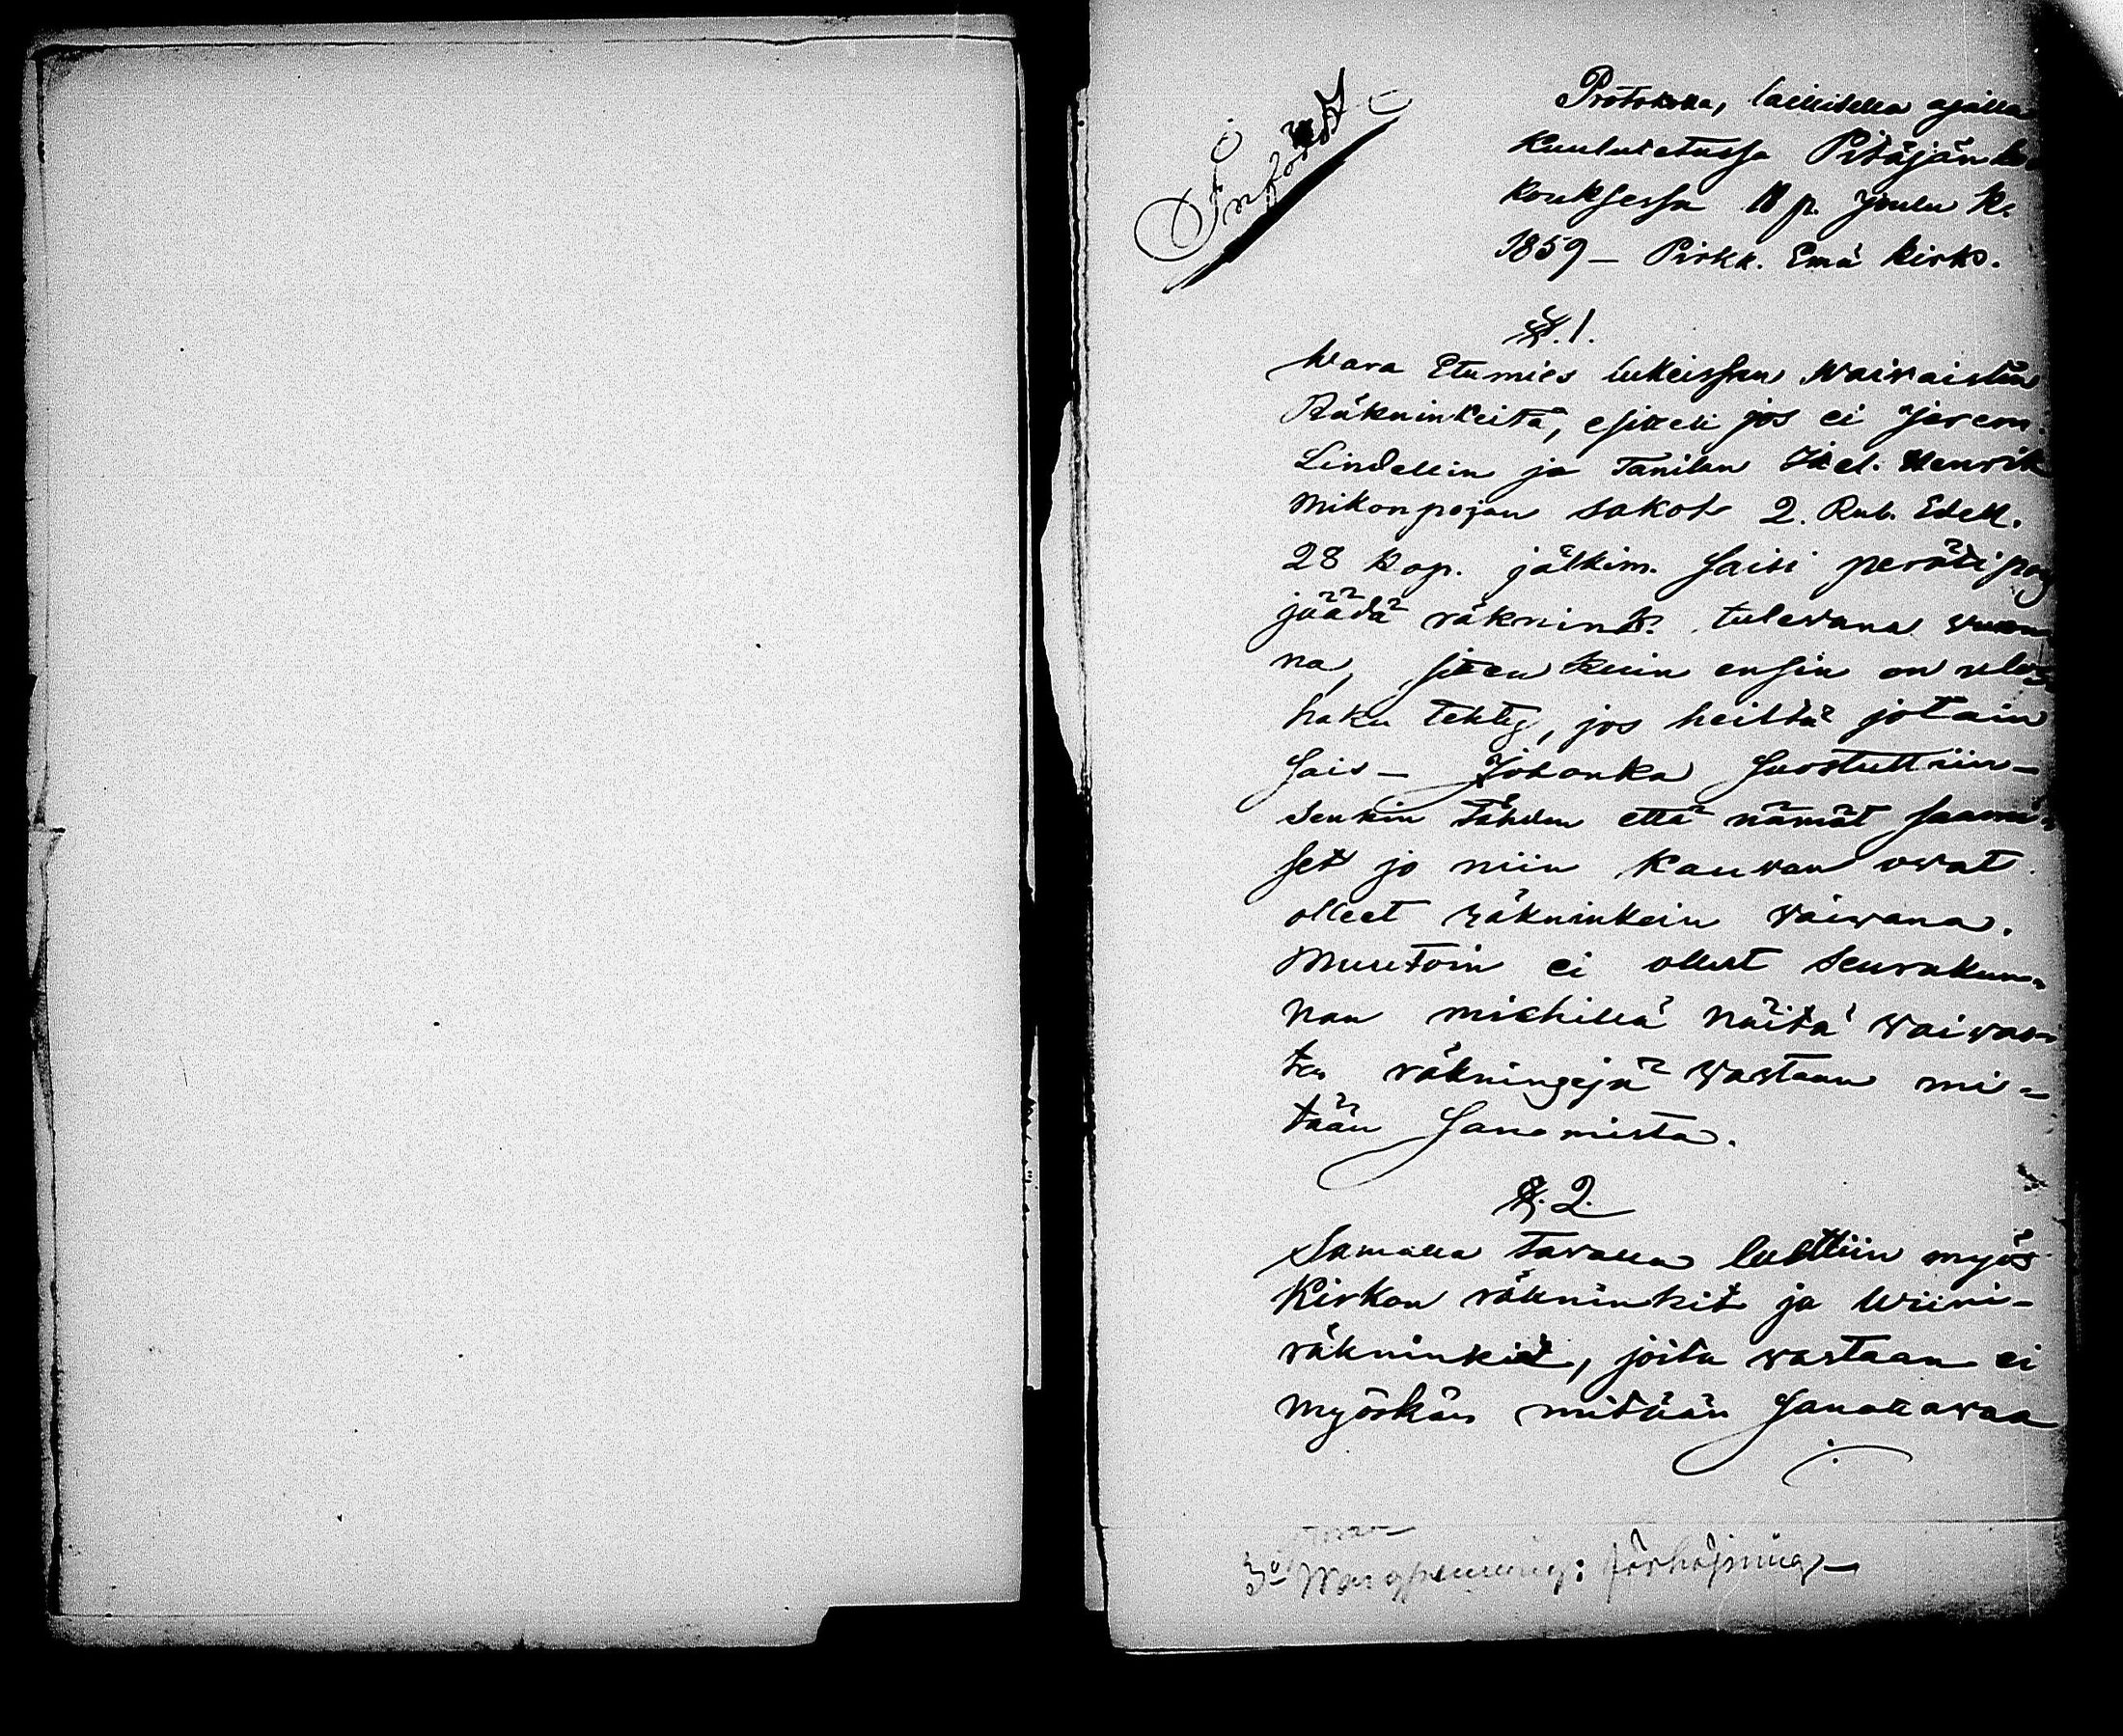 Införd
Protokolla, laillisella ajalla
Kuulutetussa Pitäjän ko
kouksessa 18 p. Joulu k.
1859 – Pirkk. Emä kirko.
§. 1.
Wara Etumies lukeissan Waivaistin
Räkninkeitä, esitteli jos ei Jerem.
Lindellin ja Tanilan Itel. Henrik
Mikonpojan sakot 2. Rub. Edell.
28 Kop. jälkim. saisi peräti pois
jäädä räknink. tulevana vuon
na, sitten kuin ensin on ulos
haku tehty, jos heiltä jotain
sais – Johonka suostuttiin –
senkin tähden että nämät saami-
set jo niin kauvan ovat
olleet räkninkein vaivana.
Muutoin ei ollut seurakun-
nan miehillä näitä vaivais-
ten räkningejä vastaan mi-
tään sanomista.
§. 2.
Samalla tavalla luettiin myös
Kirkon räkninkit ja Wiini-
räkninkit, joita vastaan ei
myöskän mitään sanottavaa
3o Wargpenning: förhöjning –